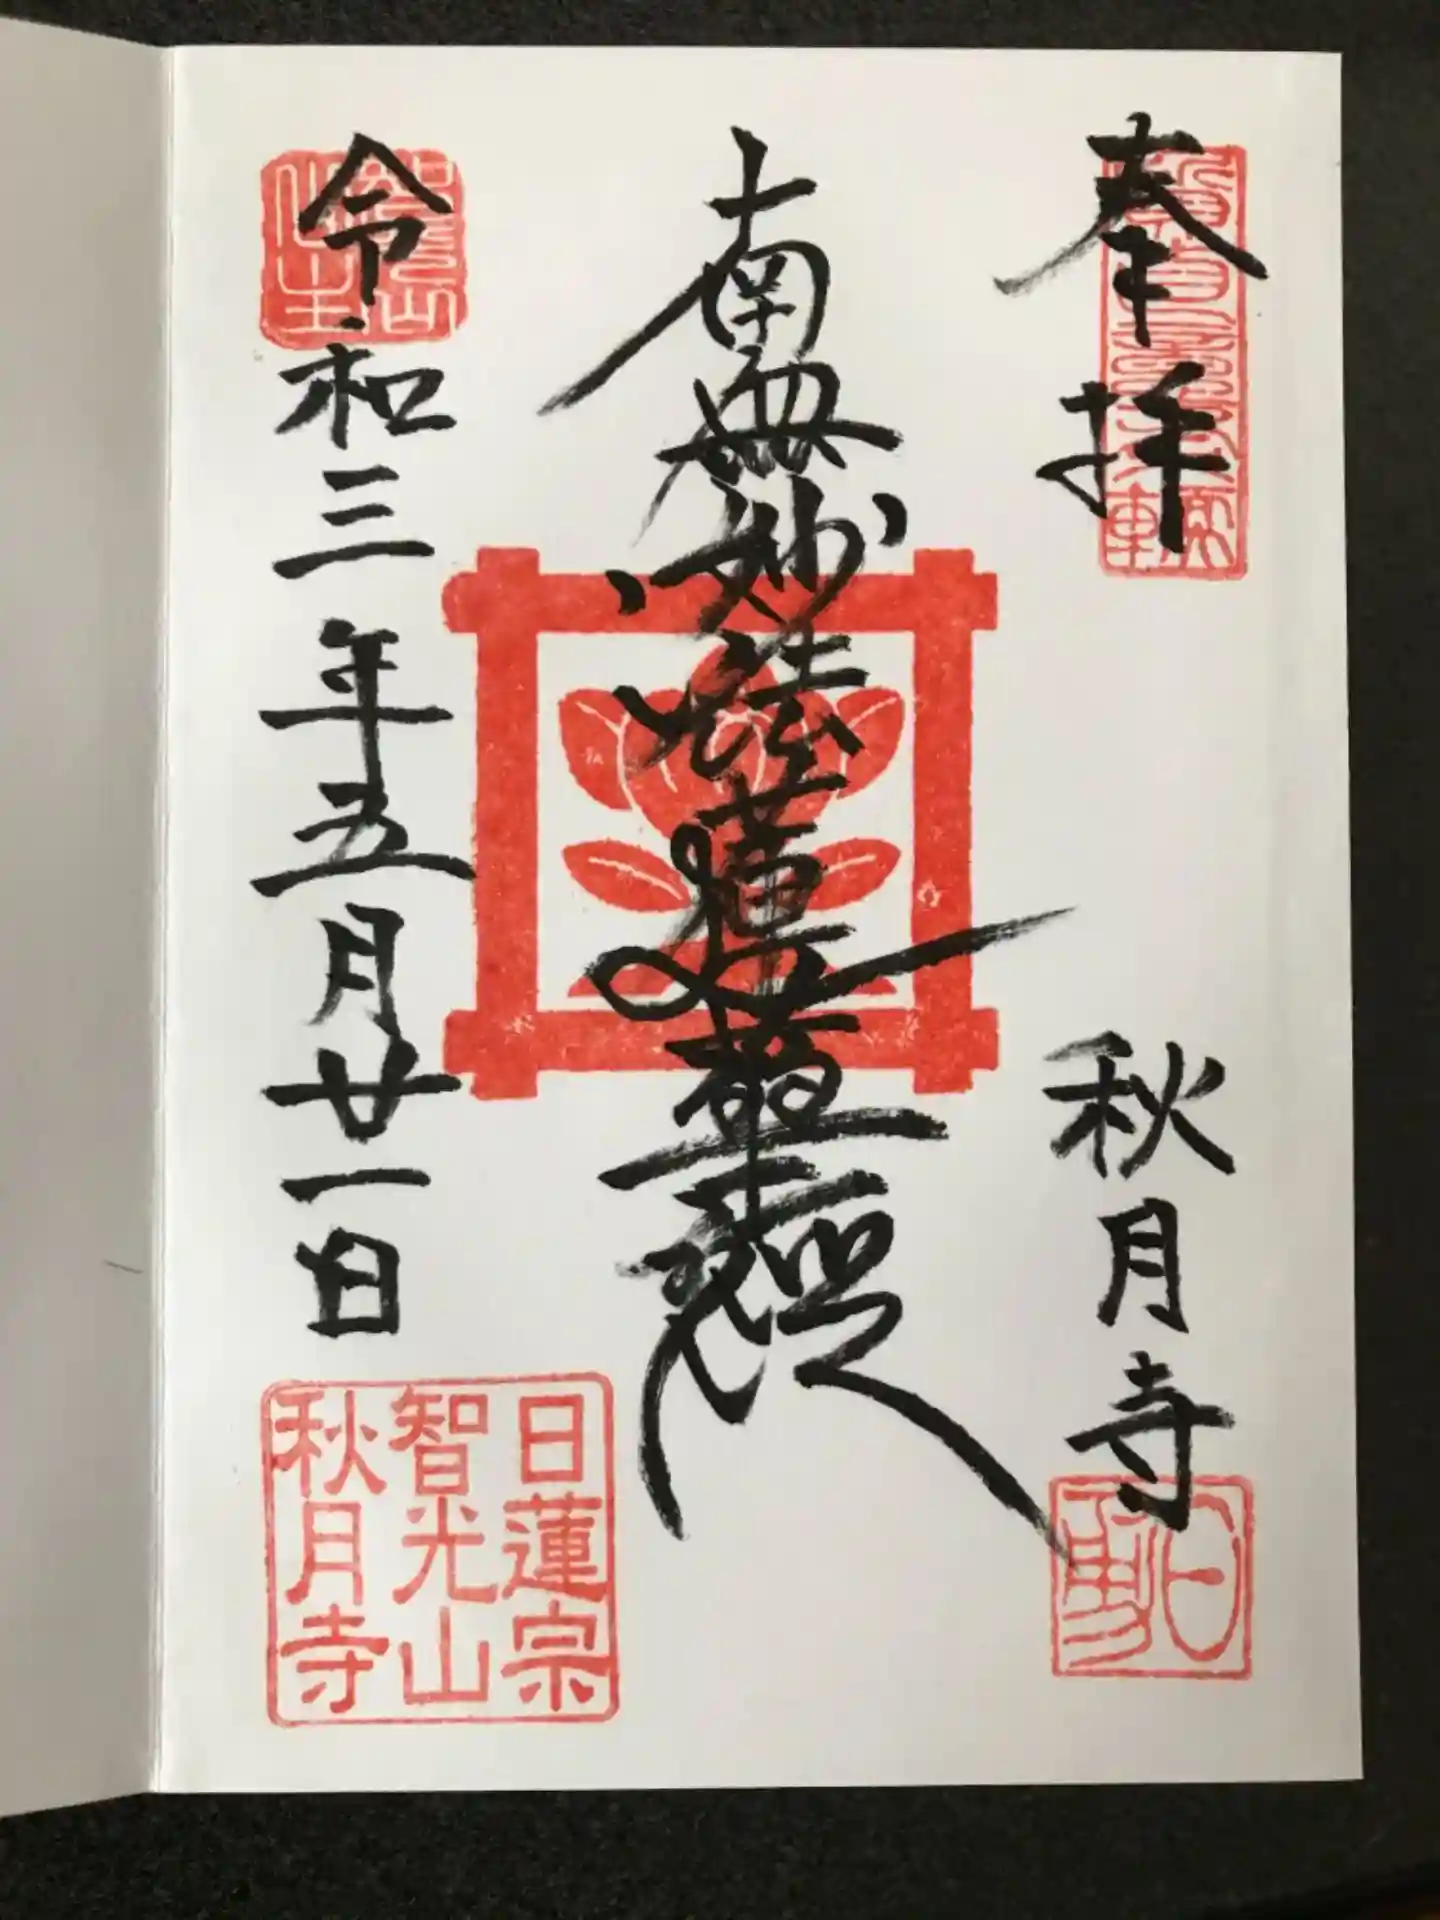 奉拝
秋月寺
南無妙法蓮華経
令和三年五月廿一日
日蓮宗
智光山
秋月寺